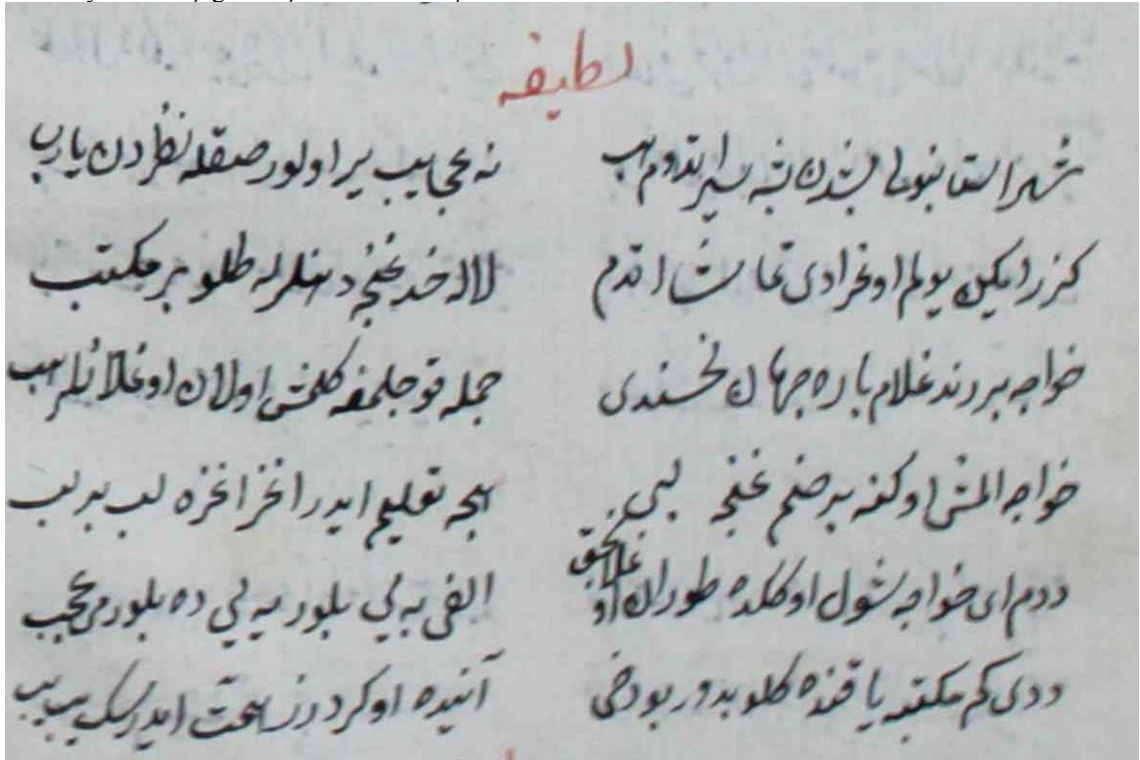 لطيفه
شهر استانبولى نه سير ايتدوم هب نه عجايب ير اولور صقله نظردن يارب
كزر ايكن يولم اوغرادى تماشا اتدم لاله خد غنچه دهنلرله طلو بر مكتب
خواجه بر رند غلام باره جهان نخسندى جمله قوجلمغه كلمش اولان اوغلانلر هب
خواجه المش اوكنه بر صنم غنچه لبى هجه تعليم ايدر اغز اغزه لب بر لب
ددم اى خواجه شول اوككده طوران اوغلانجق الفى به يى بلور يه يى ده بلورمى عجب
ددى كم مكتبه يا قنده كلوبدور بودخى آنيده اوكردرز سحت ايدرسك